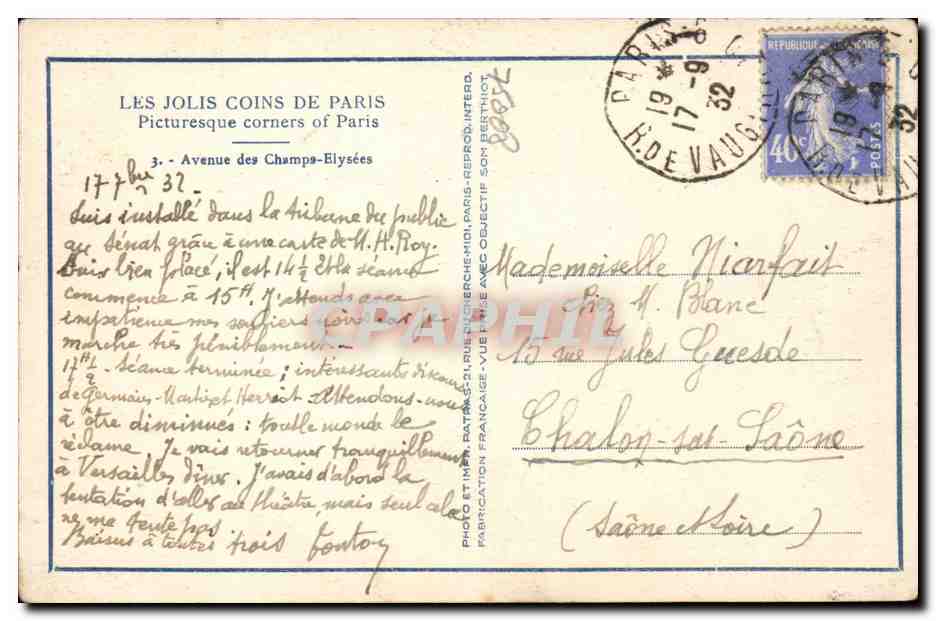 LES JOLIS COINS DE PARIS
Picturesque corners of Paris
3. - Avenue des Champs-Elysées
17 7bre 32.
Suis installé dans la tribune du public
au Sénat grâce à une carte de M. H. Roy.
Suis bien placé, il est 14 ½ et la séance
commence à 15H. J'attends avec
impatience mes souliers noirs car je
marche très péniblement.
17H ½ - séance terminée ; intéressants discours
de Germain-Martin et Herriot. Attendons-nous
à être diminués : tout le monde le
réclame. Je vais retourner tranquillement
à Versailles dîner. J'avais d'abord la
tentation d'aller au théâtre, mais seul cela
ne me tente pas
Baisers à toutes trois Tonton
PHOTO ET IMPR. PATRAS-21, RUE DU CHERCHE-MIDI, PARIS-REPROD. INTERD.
FABRICATION FRANÇAISE-VUE PRISE AVEC OBJECTIF SOM BERTHIOT
75008
PARIS
19
17 -9
32
R. DE VAUGIRARD
REPUBLIQUE FRANÇAISE
40c
POSTES
PARIS
19
17 -9
32
R. DE VAUGIRARD
Mademoiselle Niarfait
Chez M. Blanc
15 rue Jules Guesde
Chalon-sur-Saône
(Saône et Loire)
CPAPHIL